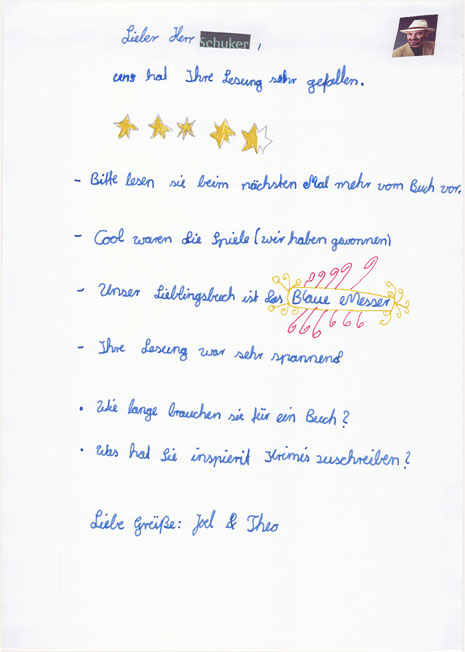 Lieber Herr Schuker,
uns hat Ihre Lesung sehr gefallen.
- Bitte lesen sie beim nächsten Mal mehr vom Buch vor.
- Cool waren die Spiele (wir haben gewonnen)
- Unser Lieblingsbuch ist das Blaue Messer
- Ihre Lesung war sehr spannend
• Wie lange brauchen sie für ein Buch?
• Was hat Sie inspirit Krimis zuschreiben?
Liebe Grüße: Joel & Theo